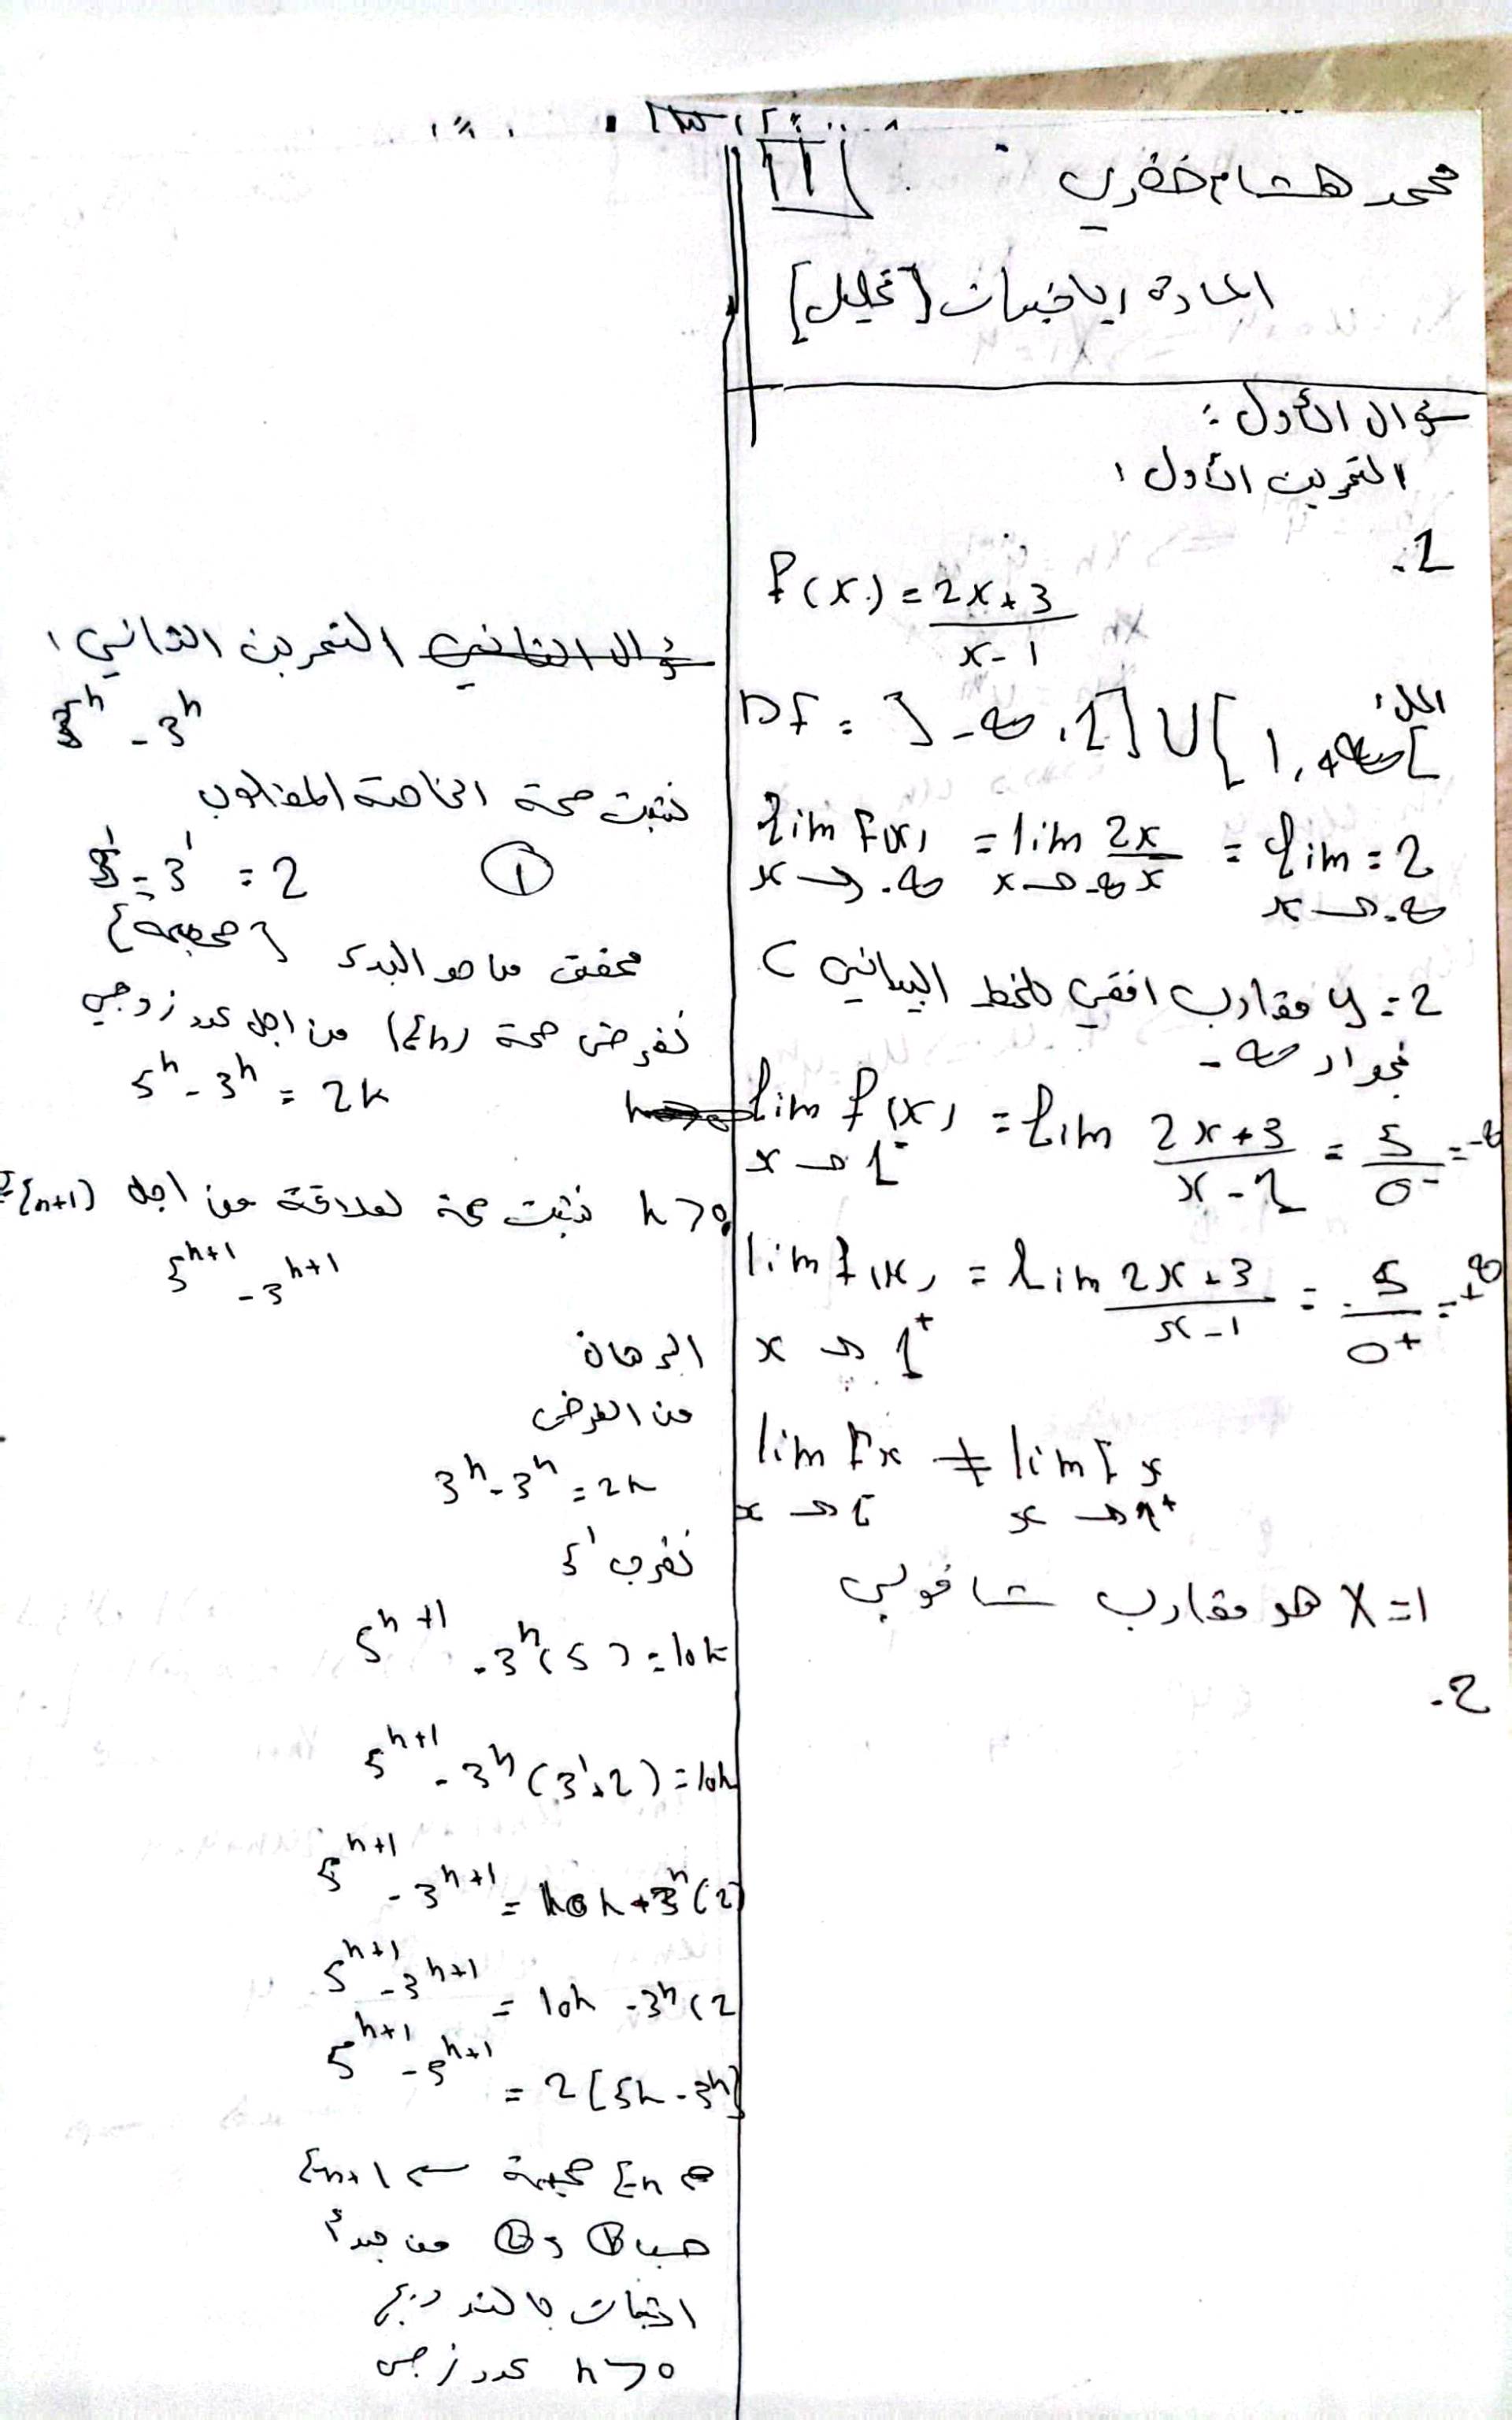 محمد هشام خضري
1
المادة رياضيات [تحليل]
سؤال الأول:
التمرين الأول:
1.
f(x) = (2x+3)/(x-1)
الحل:
Df = ]-∞, 1[ ∪ ]1, +∞[
lim f(x) = lim 2x/x = lim = 2
x→-∞ x→-∞ x→-∞
y = 2 مقارب افقي للخط البياني C
بجوار -∞
lim f(x) = lim (2x+3)/(x-1) = 5/0⁻ = -∞
x→1⁻
lim f(x) = lim (2x+3)/(x-1) = 5/0⁺ = +∞
x→1⁺
lim fx ≠ lim f x
x→1⁻ x→1⁺
x=1 هو مقارب شاقولي
2.
التمرين الثاني:
5ⁿ - 3ⁿ
نثبت صحة الخاصة
5¹ - 3¹ = 2 ①
محقق {صحيحة}
نفرض صحة E(n) من اجل عدد زوجي
5ⁿ - 3ⁿ = 2k
n>0 نثبت صحة لعلاقة من اجل E(n+1)
5ⁿ⁺¹ - 3ⁿ⁺¹
البرهان
من الفرض
3ⁿ - 3ⁿ = 2k
نضرب 5¹
5ⁿ⁺¹ - 3ⁿ(5) = 10k
5ⁿ⁺¹ - 3ⁿ(3¹+2) = 10k
5ⁿ⁺¹ - 3ⁿ⁺¹ = 10k + 3ⁿ(2)
5ⁿ⁺¹ - 3ⁿ⁺¹ = 10k - 3ⁿ(2
5ⁿ⁺¹ - 3ⁿ⁺¹ = 2[5k - 3ⁿ]
En صحيحة ← En+1
من مبدأ
اثبات بالتدريج
n>0 عدد زوجي